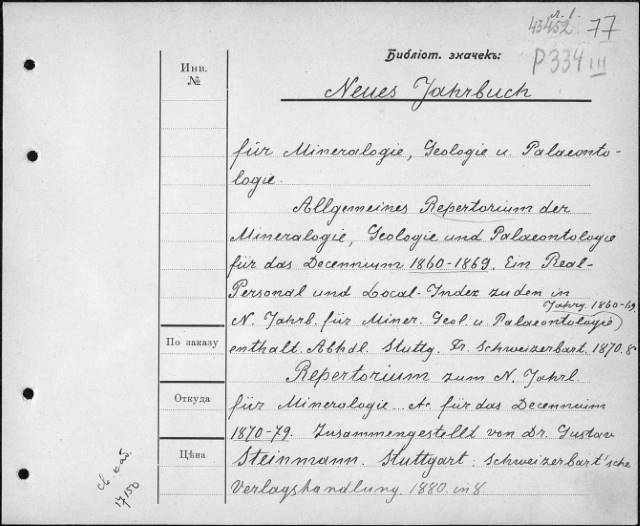 л. 1.
43452 77
Библіот. значекъ:
Р 334 III
Инв.
№
Neues Jahrbuch
für Mineralogie, Geologie u. Palaeonto-
logie.
Allgemeines Repertorium der
Mineralogie, Geologie und Palaeontologie
für das Decennium 1860-1869. Ein Real-
Personal und Local-Index zu den in
Jahrg. 1860-69
N. Jahrb. für Miner. Geol. u. Palaeontologie
enthalt. Abhdl. Stuttg. Schweizerbart. 1870. 8
По заказу
Repertorium zum N. Jahrb.
Откуда
für Mineralogie... für das Decennium
1870-79. Zusammengestellt von Dr. Gustav
Цѣна
Steinmann. Stuttgart. Schweizerbart'sche
Verlagshandlung. 1880. in 8
св. каб.
17150